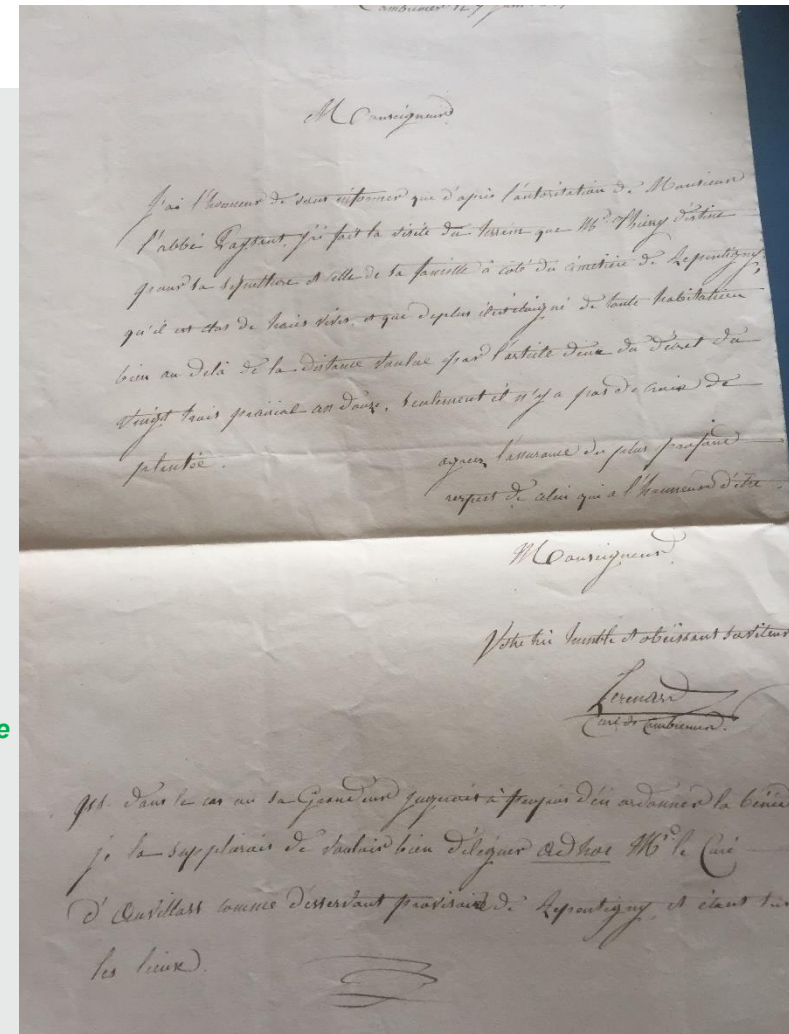 Cambremer le
Monseigneur
J'ai l'honneur de vous informer que d'après l'autorisation de Monsieur
l'abbé j'ai fait la visite du terrein que Mr Thierry destine
pour sa sépulture et celle de sa famille à coté du cimetière de Repentigny,
qu'il est clos de haies vives, et que deplus il est éloigné de toute habitation
bien au delà de la distance voulue par l'article deux du décret du
vingt trois prairial an douze, seulement il n'y a pas de croix de
plantée.
agréez l'assurance du plus profond
respect de celui qui a l'honneur d'être
Monseigneur
Votre très humble et obéissant serviteur
Curé de Cambremer.
dans le cas où sa Grandeur jugerait à propos d'en ordonner la béné
je la supplierais de vouloir bien déléguer ad hoc Mr le Curé
d'Auvillars comme desservant provisoire de Repentigny, et étant sur
les lieux.
e